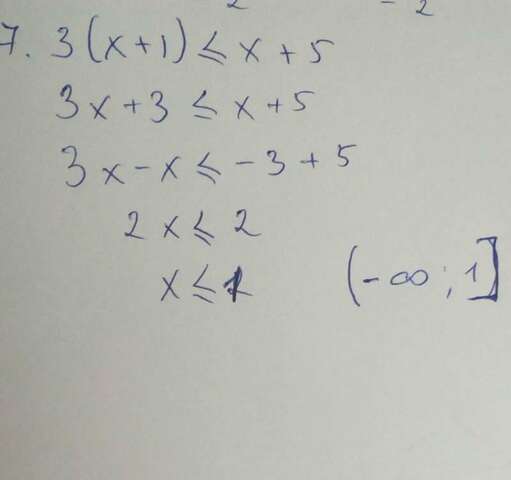 7. 3(x+1) ≤ x+5
3x+3 ≤ x+5
3x-x ≤ -3+5
2x ≤ 2
x ≤ 1 (-∞; 1]